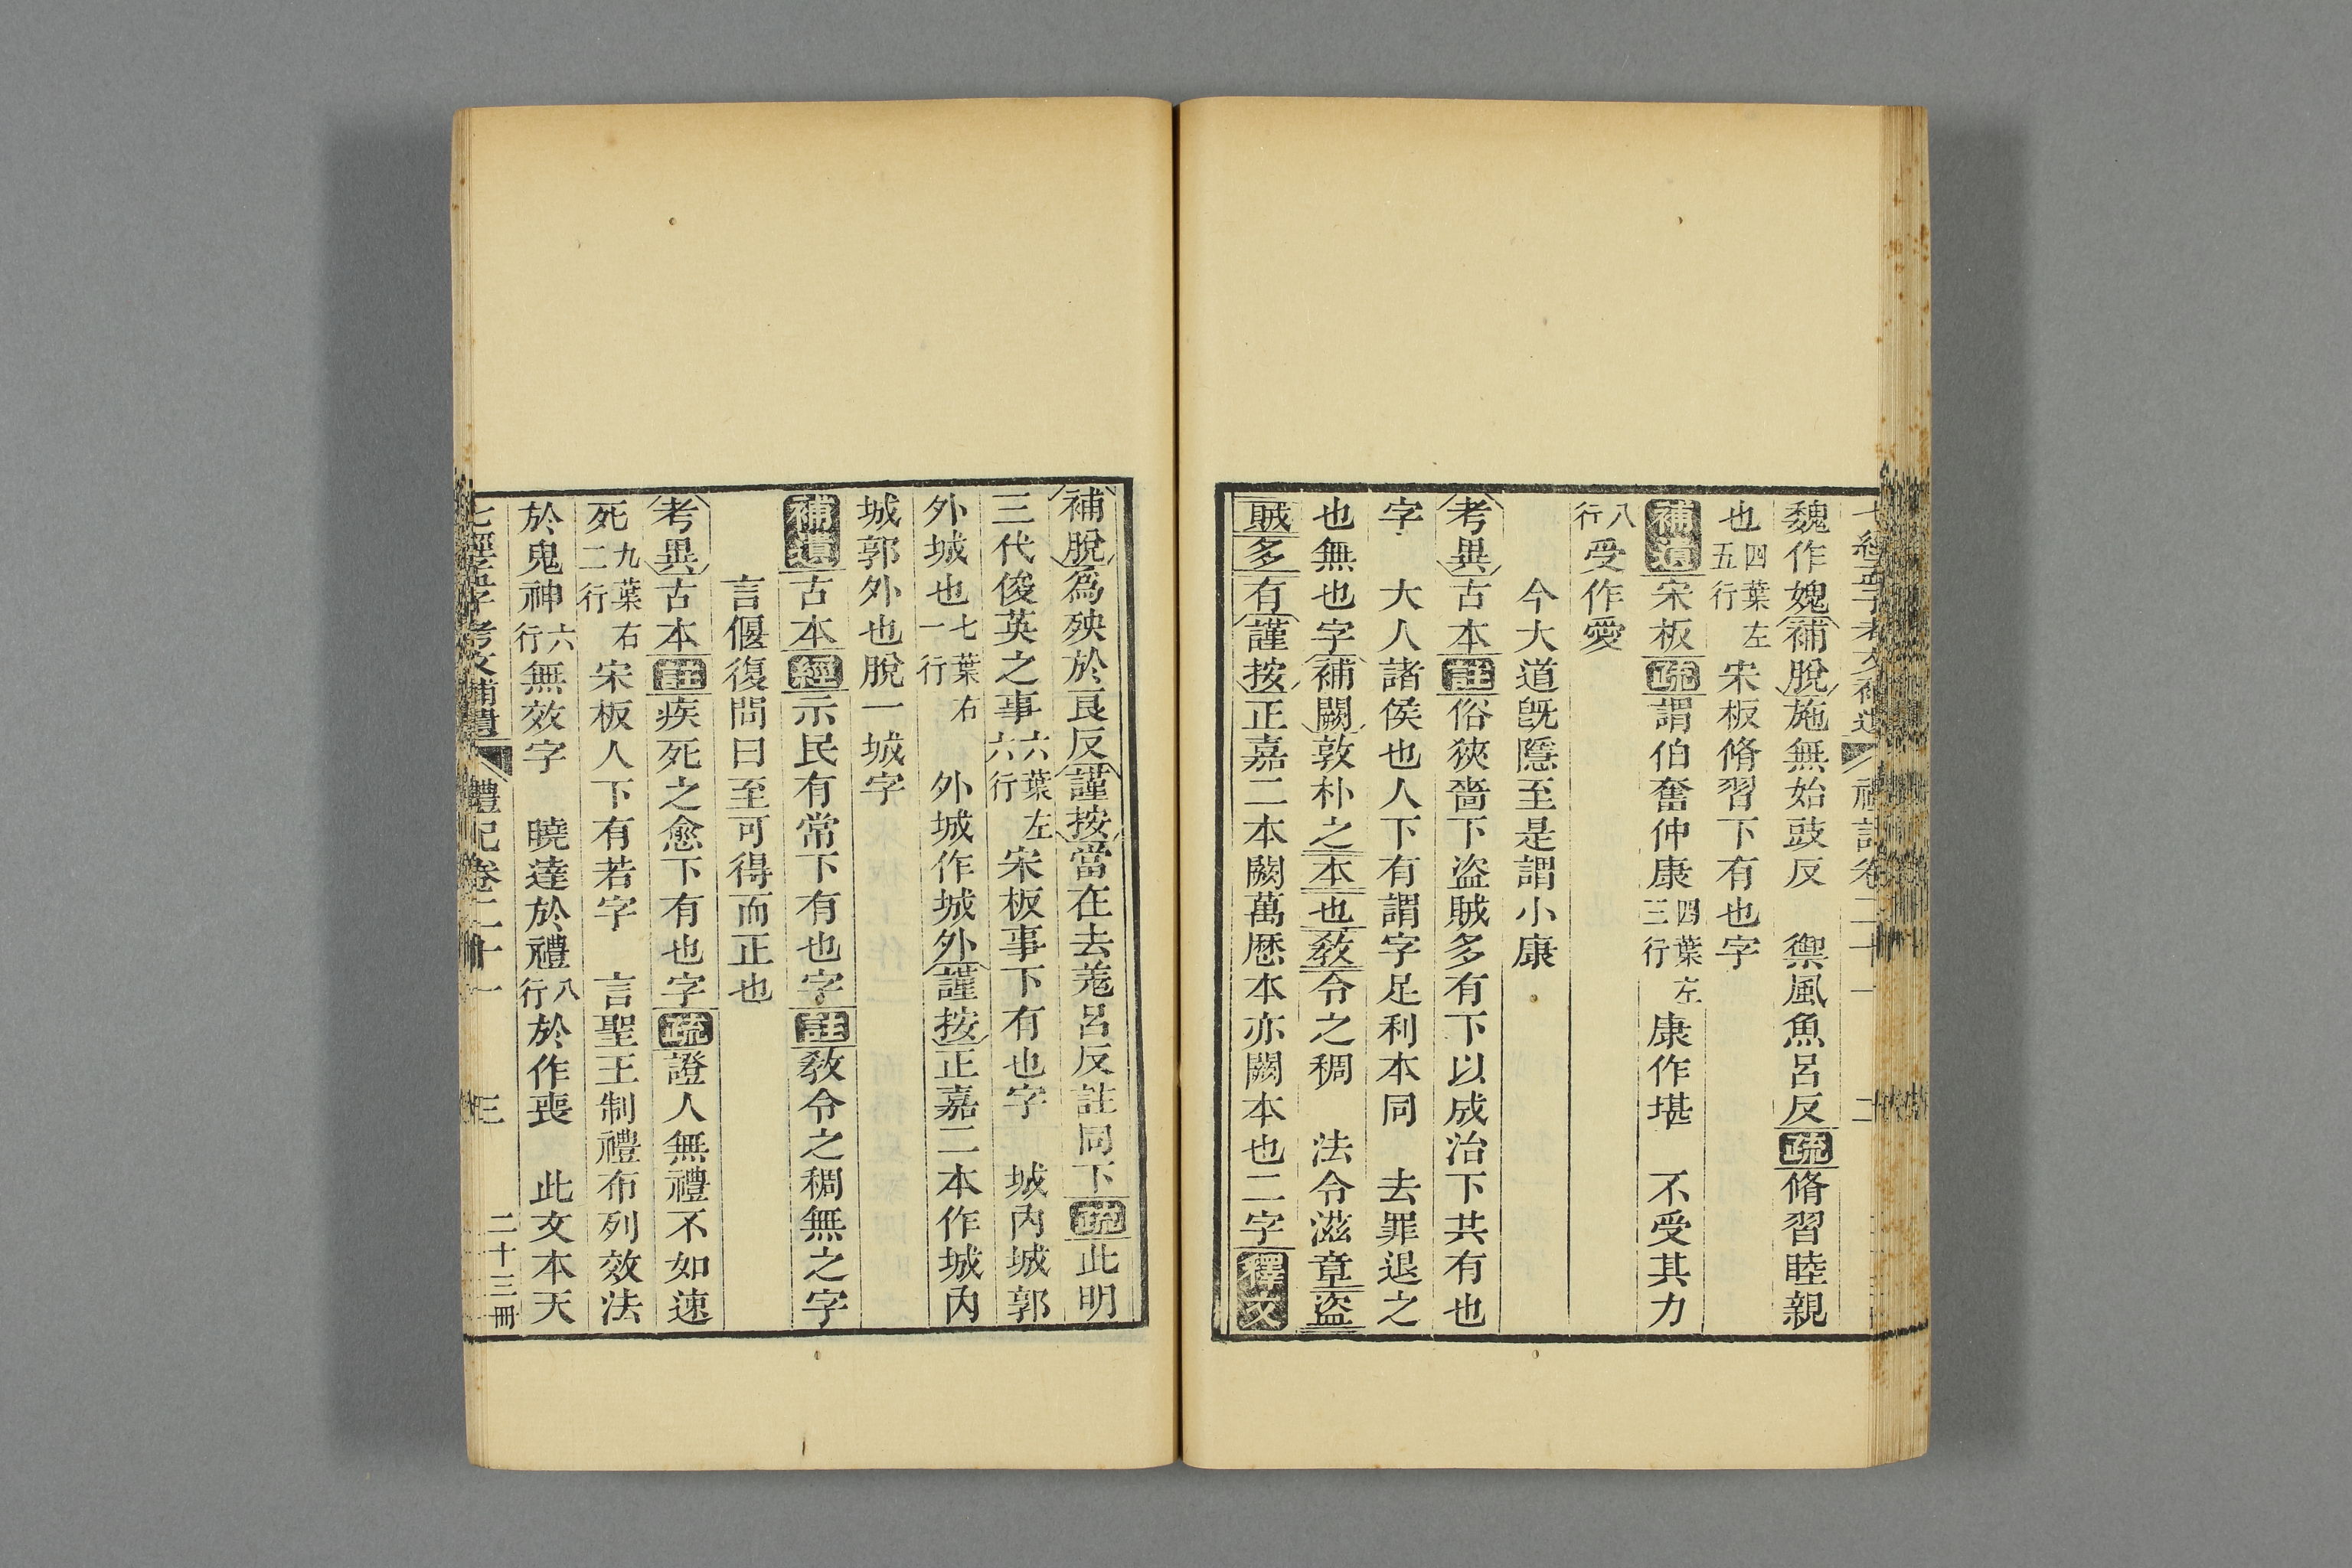 七經孟子考文補遺 禮記卷二十一 二
魏作媿補脫施無始豉反 禦風魚呂反疏脩習睦親
也四葉左五行宋板脩習下有也字
補遺宋板疏謂伯奮仲康四葉左三行康作堪 不受其力
八行受作愛
今大道既隱至是謂小康
考異古本註俗狹嗇下盜賊多有下以成治下共有也
字 大人諸侯也人下有謂字足利本同 去罪退之
也無也字補闕敦朴之本也敎令之稠 法令滋章盜
賊多有謹按正嘉二本闕萬厯本亦闕本也二字釋文
補脫為殃於良反謹按當在去羌呂反註同下疏此明
三代俊英之事六葉左六行宋板事下有也字 城內城郭
外城也七葉右一行 外城作城外謹按正嘉二本作城內
城郭外也脫一城字
補遺古本經示民有常下有也字註敎令之稠無之字
言偃復問曰至可得而正也
考異古本註疾死之愈下有也字疏證人無禮不如速
死九葉右二行宋板人下有若字 言聖王制禮布列效法
於鬼神六行無效字 曉達於禮八行於作喪 此文本天
七經孟子考文補遺 禮記卷二十一 三 二十三冊